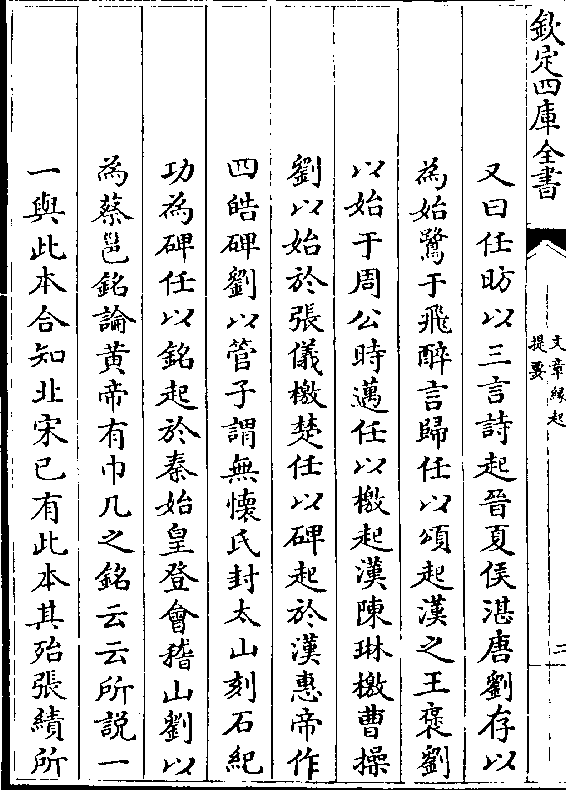 欽定四庫全書
文章縁起
提要
二
又曰任昉以三言詩起晉夏侯湛唐劉存以
為始鷺于飛醉言歸任以頌起漢之王褒劉
以始于周公時邁任以檄起漢陳琳檄曹操
劉以始於張儀檄楚任以碑起於漢惠帝作
四皓碑劉以管子謂無懐氏封太山刻石紀
功為碑任以銘起於秦始皇登會稽山劉以
為蔡邕銘論黄帝有巾几之銘云云所説一
一與此本合知北宋已有此本其殆張績所